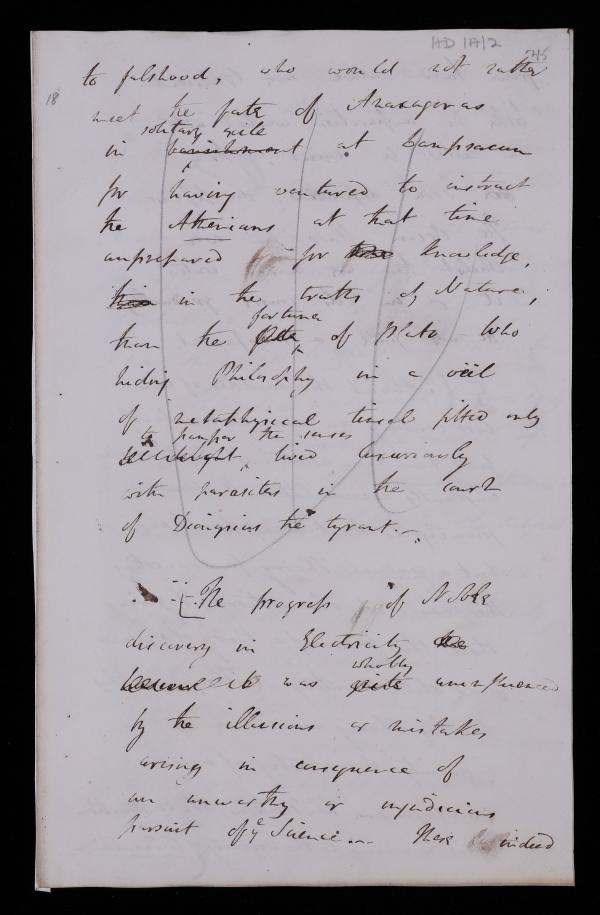 HD 1A/2
18
to falshood, who would not rather
meet the fate of Anaxagoras
solitary exile
in banishment at Lampsacum
for having ventured to instruct
the Athenians at that time
unprepared for knowledge,
in the truths of Nature;
fortune
than the fate of Plato who
hiding Philosophy in a veil
of metaphysical tinsel fitted only
to pamper the senses
lived luxuriously
with parasites in the court
of Dionysius the tyrant.–
The progress of Noble
discovery in Electricity
wholly
it was quite uninfluenced
by the illusions or mistakes
arising in consequence of
an unworthy or injudicious
pursuit of ye Science.– There indeed